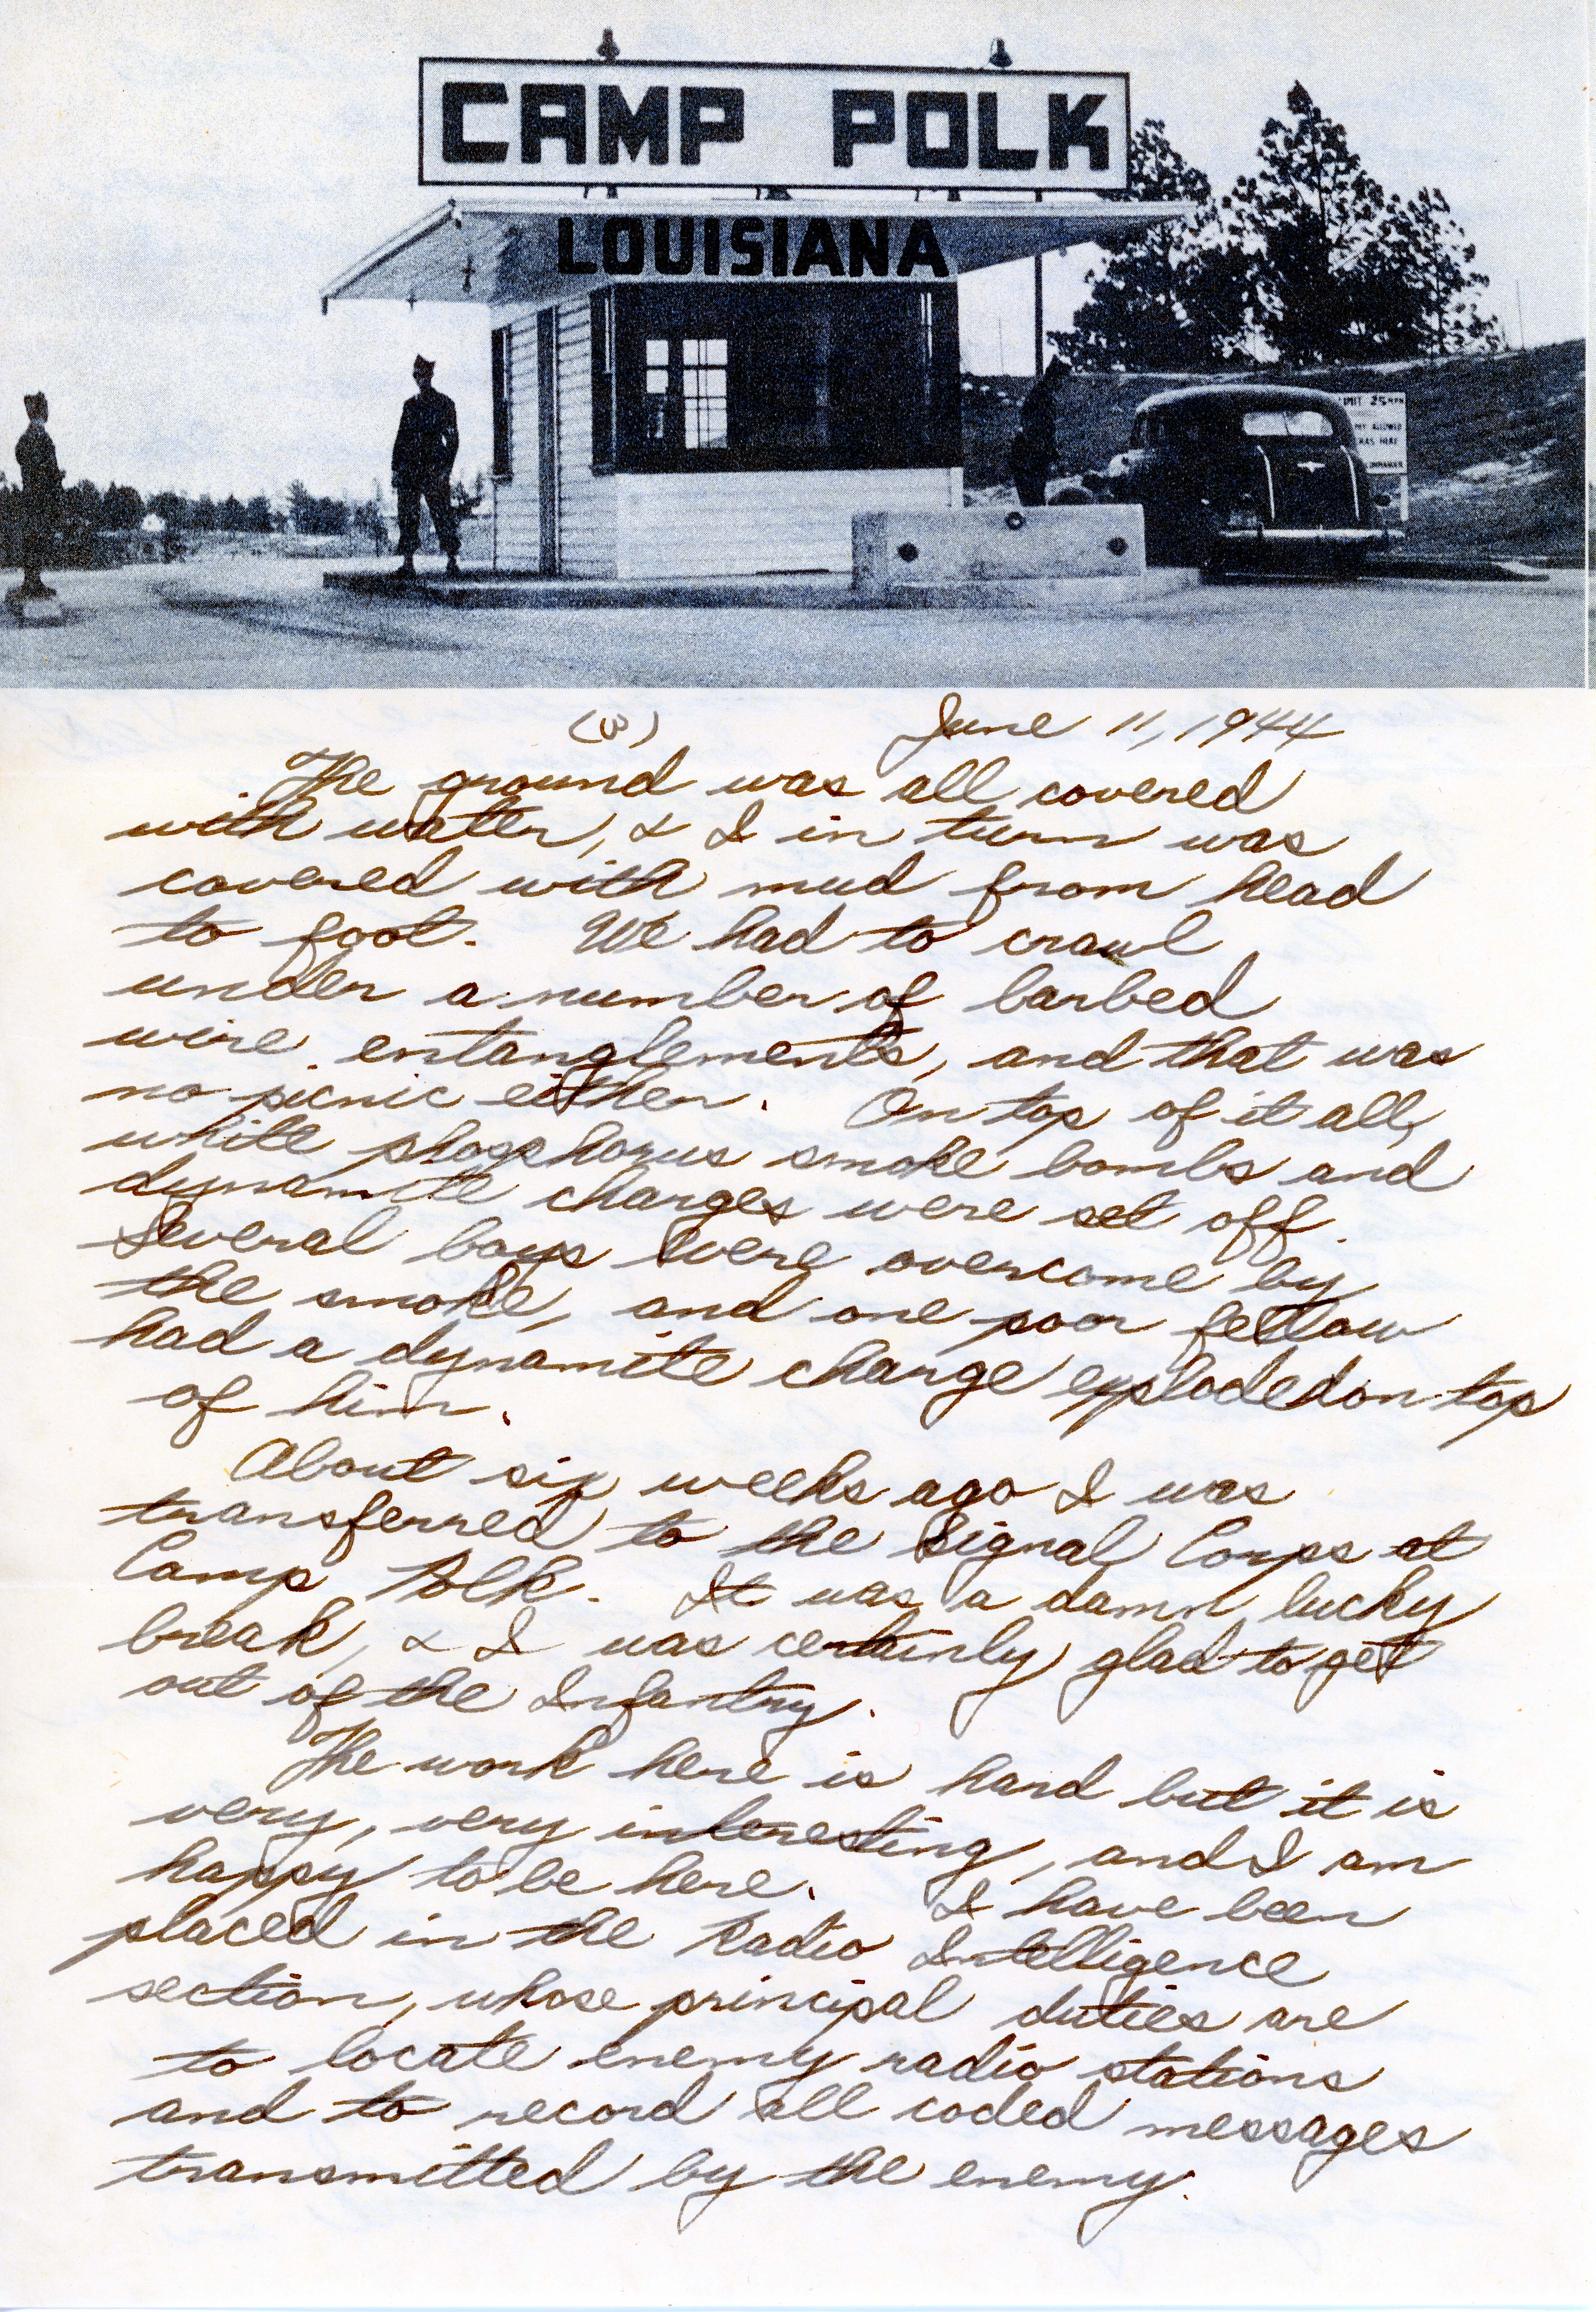 CAMP POLK
LOUISIANA
LIMIT 25 MPH
ALLOWED
HERE
(3) June 11, 1944
The ground was all covered
with water, & I in turn was
covered with mud from head
to foot. We had to crawl
under a number of barbed
wire entanglements, and that was
no picnic either. On top of it all,
white phosphorus smoke bombs and
dynamite charges were set off.
Several boys were overcome by
the smoke, and one poor fellow
had a dynamite charge exploded on top
of him.
About six weeks ago I was
transferred to the Signal Corps at
Camp Polk. It was a damn lucky
break, & I was certainly glad to get
out of the Infantry.
The work here is hard but it is
very, very interesting, and I am
happy to be here. I have been
placed in the Radio Intelligence
section, whose principal duties are
to locate enemy radio stations
and to record all coded messages
transmitted by the enemy.